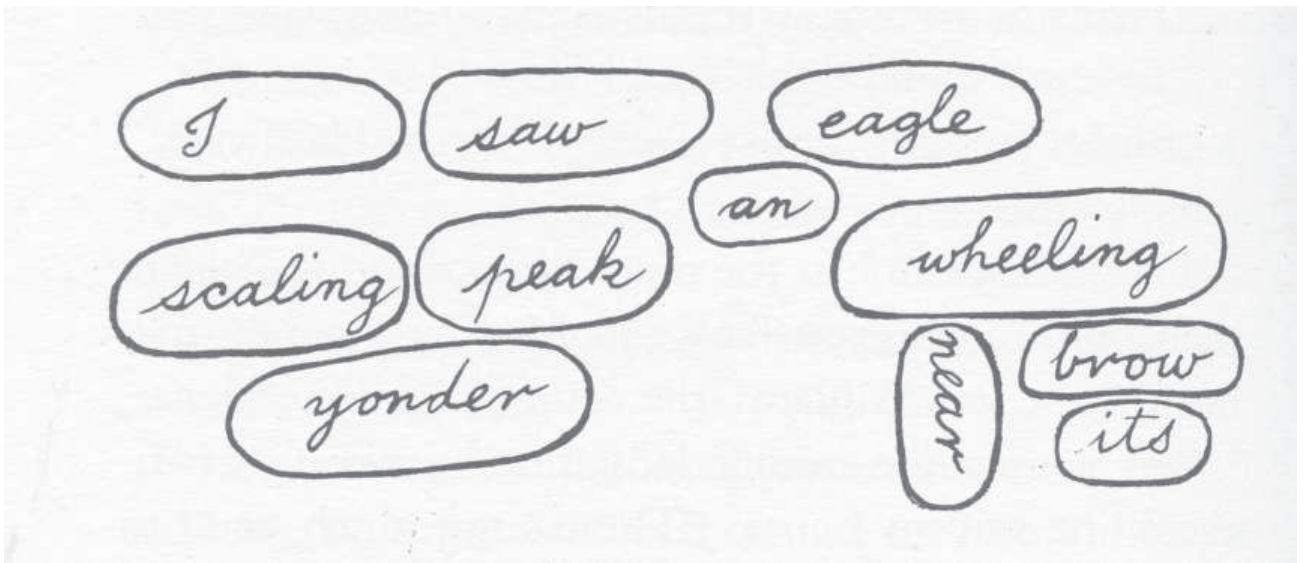 I saw eagle
an
scaling peak wheeling
yonder near brow
its